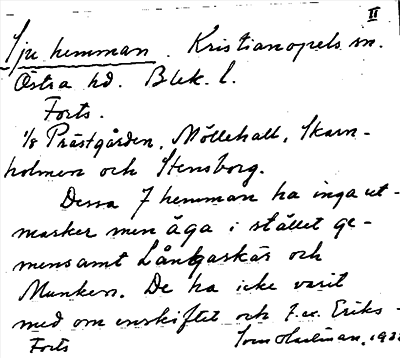 II
Sju hemman. Kristianopels sn.
Östra hd. Blek. l.
Forts.
1/8 Prästgården, Möllehall, Skarn-
holmen och Stensborg.
Dessa 7 hemman ha inga ut-
marker men äga i stället ge-
mensamt Långaskär och
Munken. De ha icke varit
med om enskiftet och t.ex. Eriks-
Forts